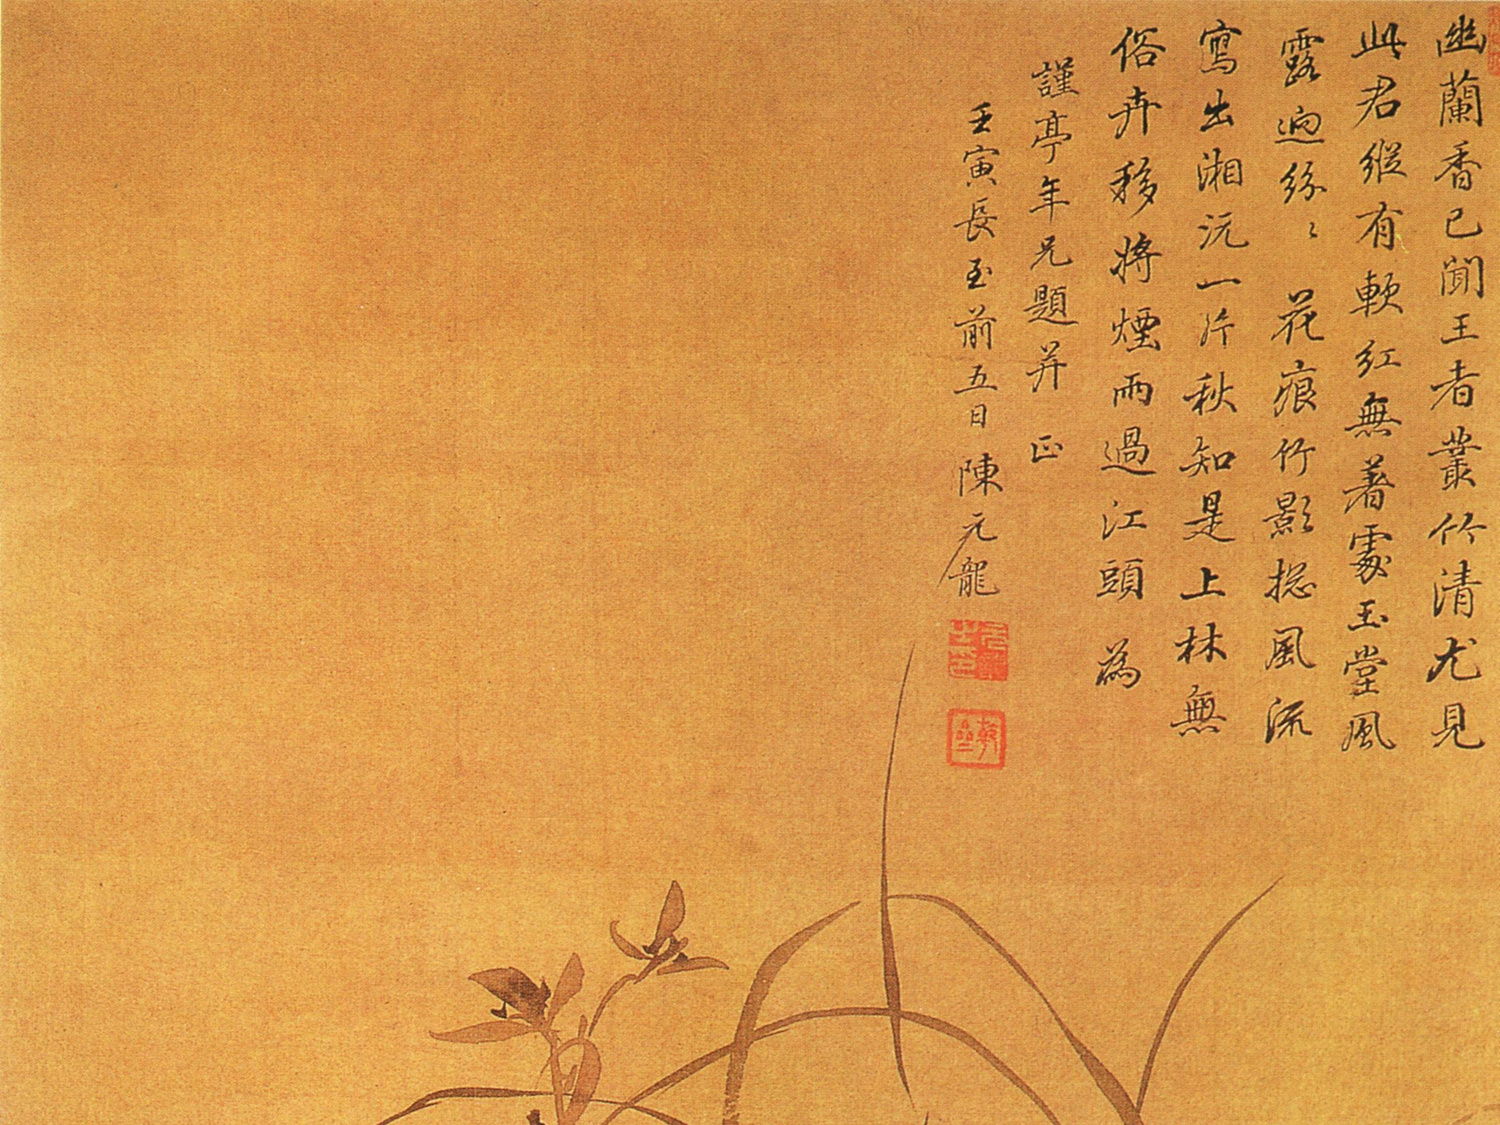 幽蘭香已聞王者叢竹清尤見
此君縱有軟紅無著處玉堂風
露迥紛〻花痕竹影摠風流
寫出湘沅一片秋知是上林無
俗卉移將煙雨過江頭 為
謹亭年兄題并 正
壬寅長至前五日 陳元龍